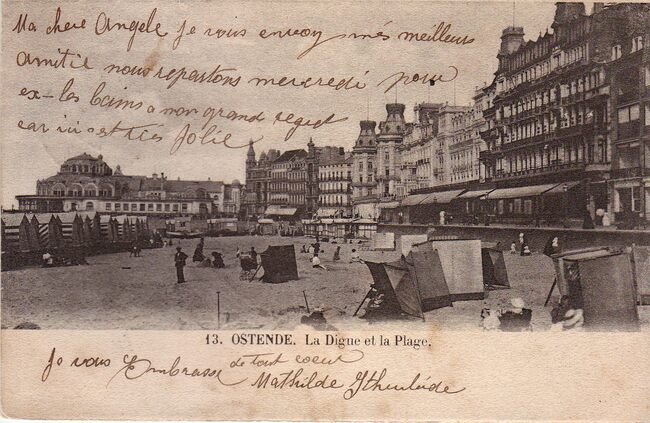 Ma chere Angèle je vous envoy més meilleurs
amitié nous repartons mercredi pour
ex-les bains a mon grand regret
car ici est tres Jolie
13. OSTENDE. La Digue et la Plage.
Je vous Embrasse de tout coeur
Mathilde